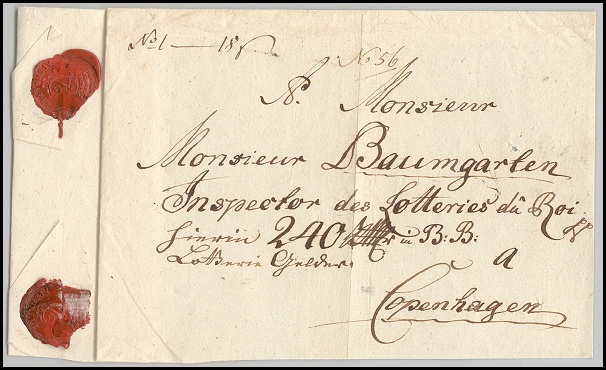 No 1 — 18
No 56
A. Monsieur
Monsieur Baumgarten
Inspector des Lotteries du Roi
hierin 240 in B: B:
Lotterie Gelder.
a
Copenhagen